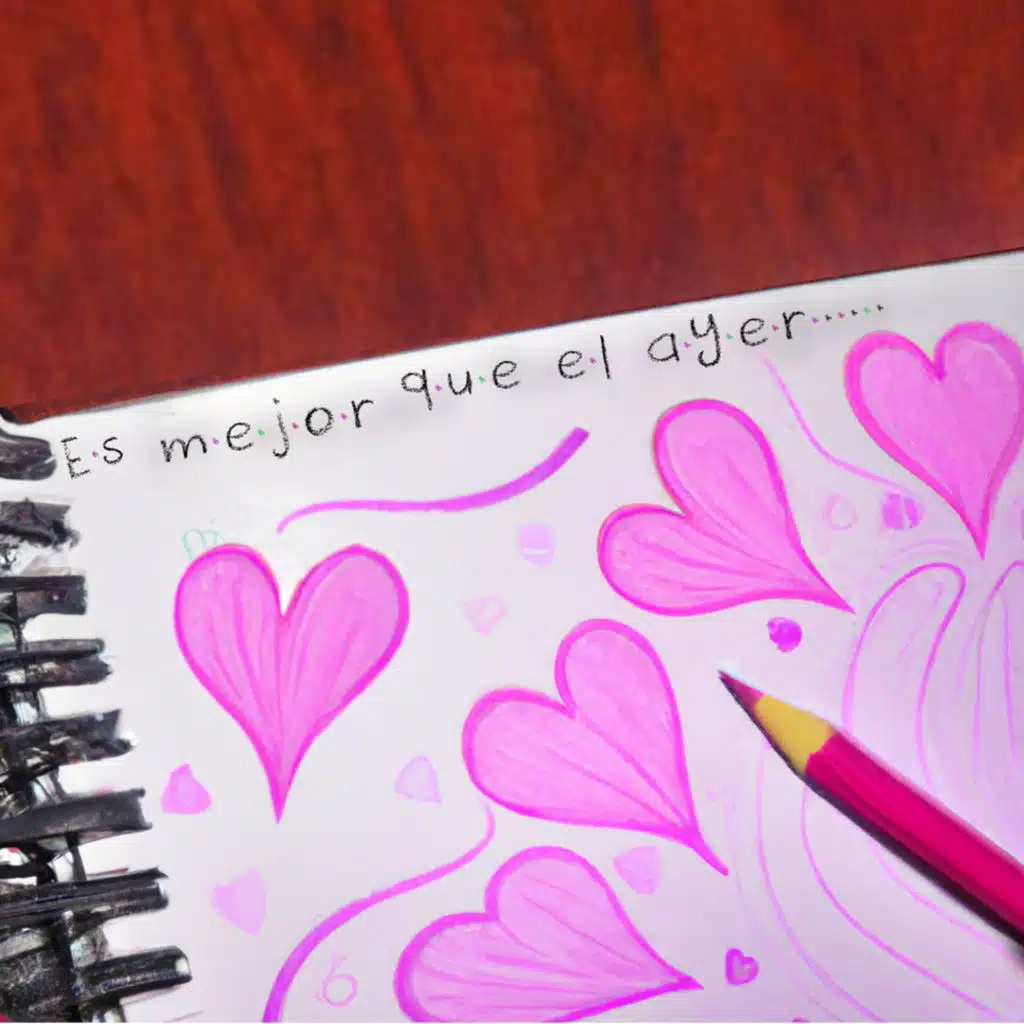 Es mejor que el ayer.....